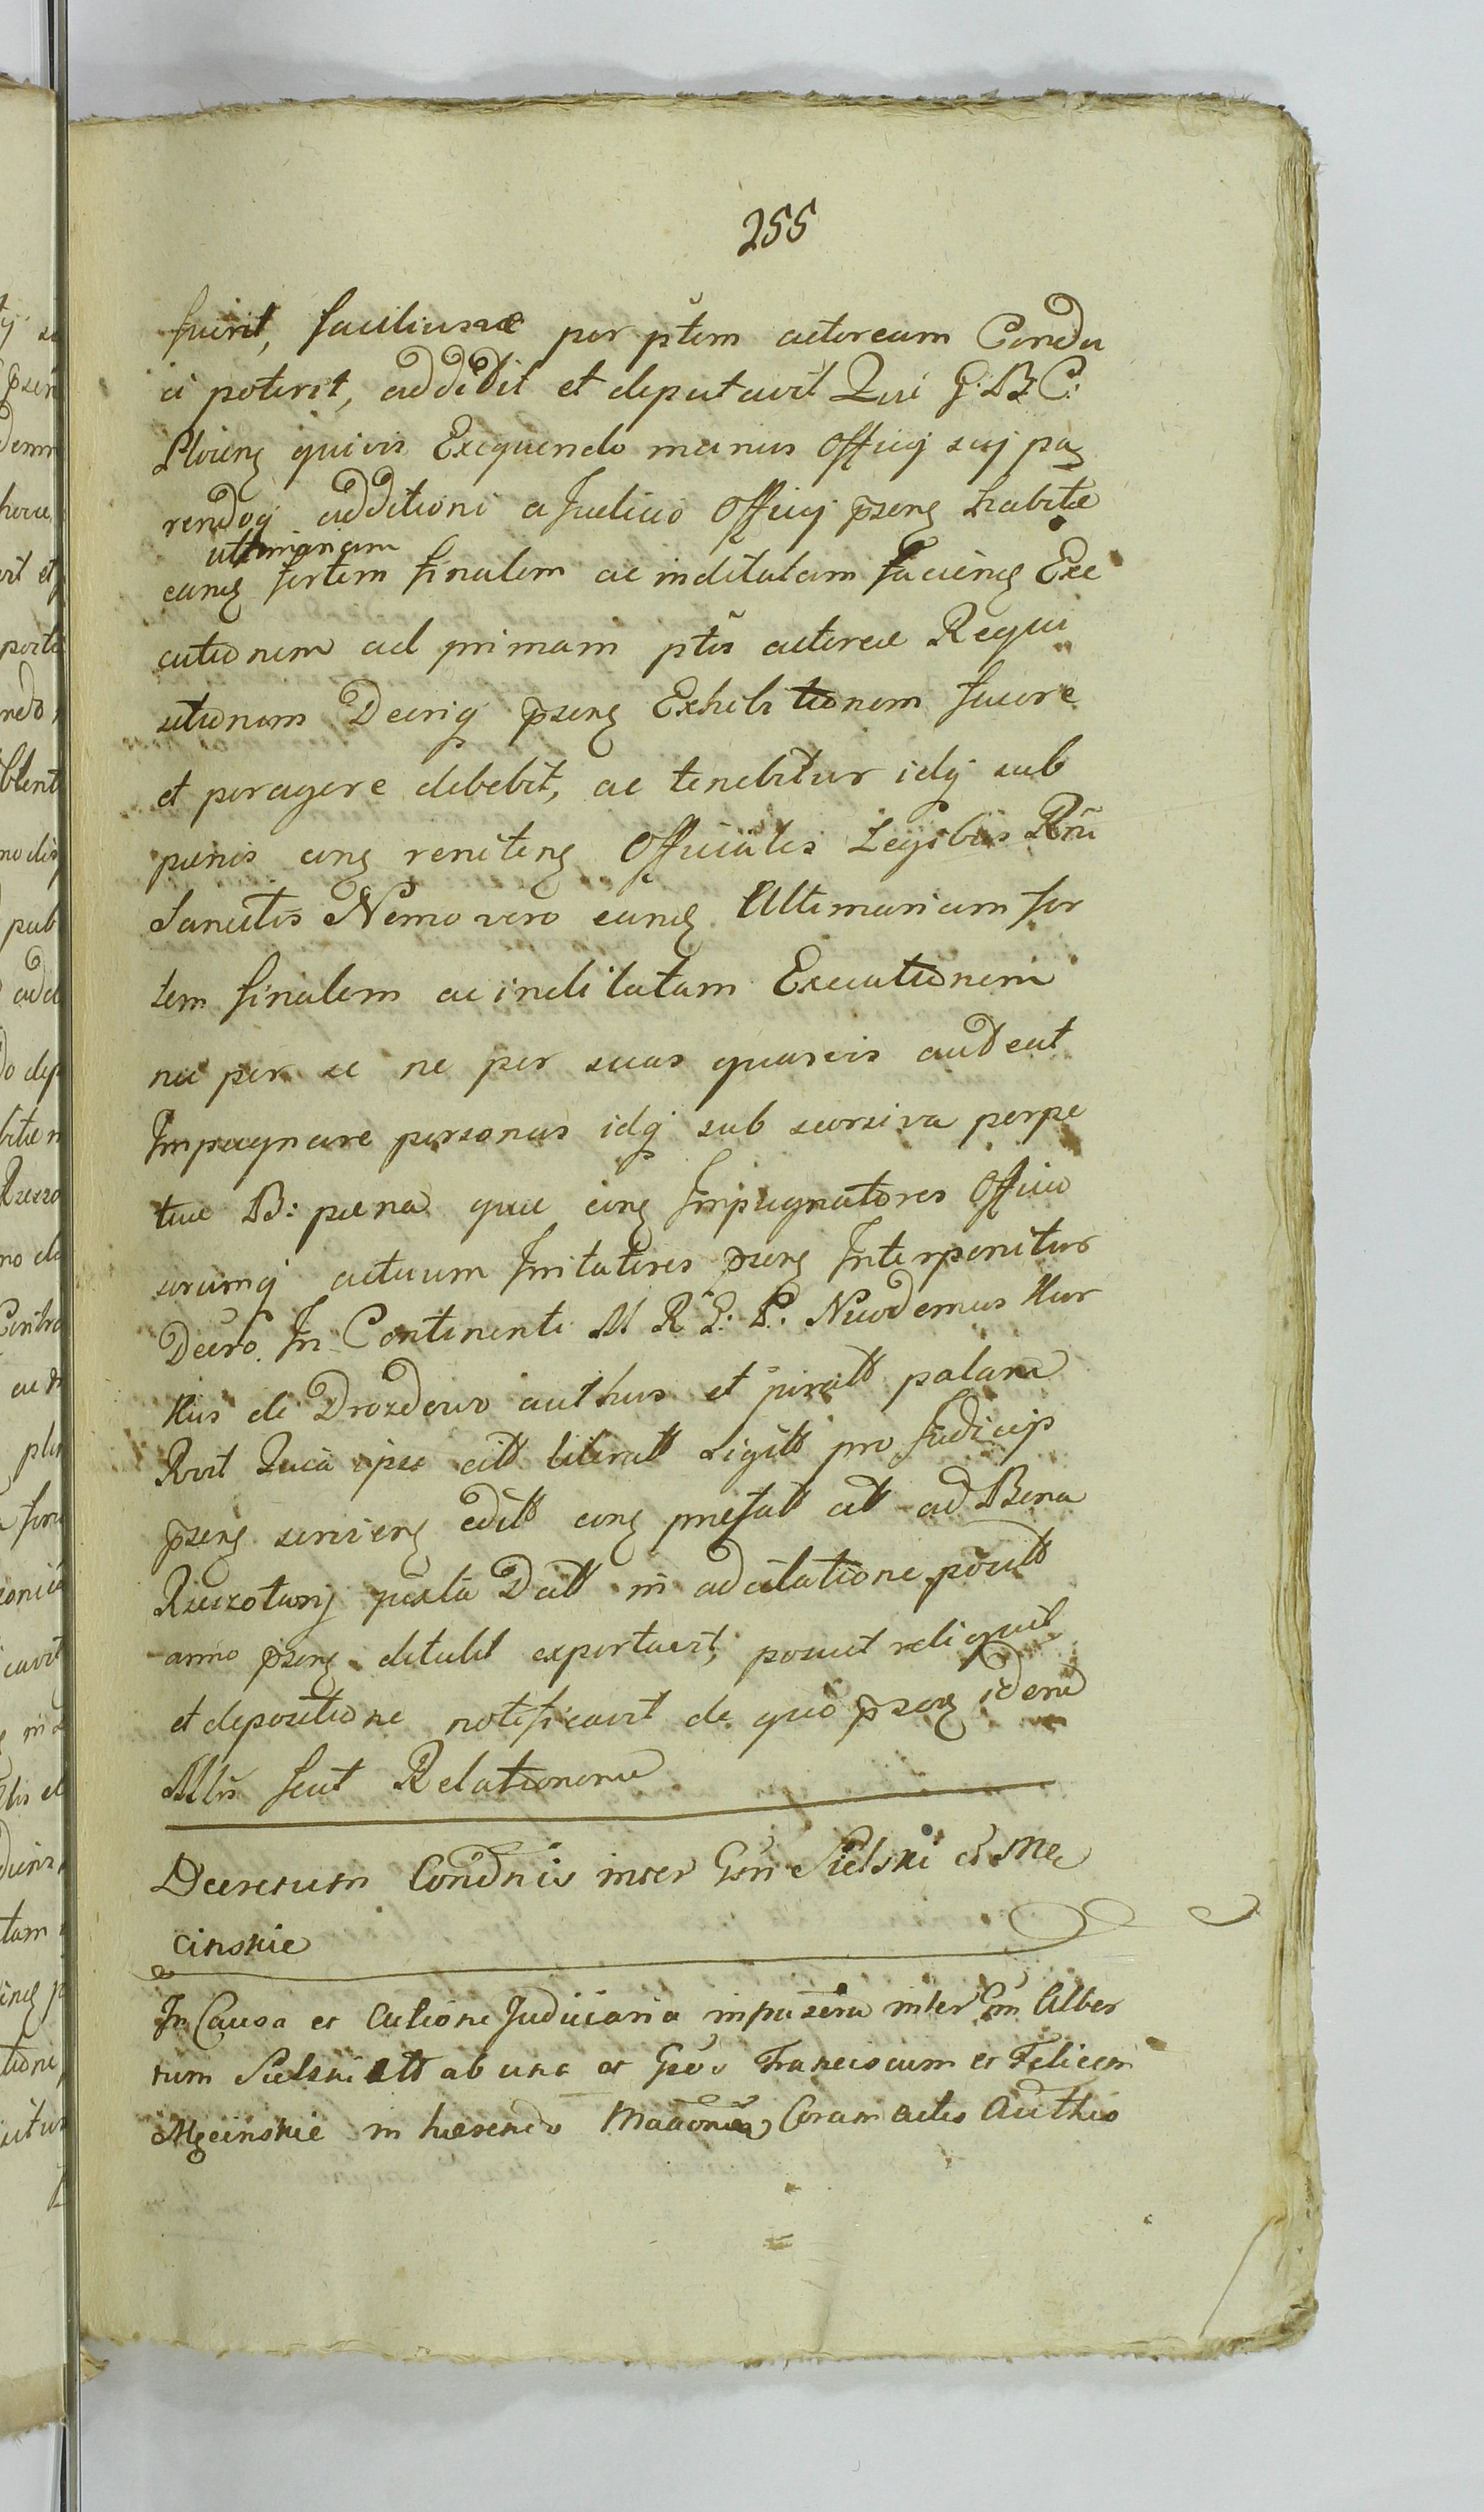 255
fuerit, faciliusve per ptem actoream Condu
ci poterit, addidit et deputavit Qui G. B. C:
Plocens quivis Exequendo munus Officij sui pa
rendoq additioni a Judicio Officij psens habitæ
ultimariam
eand fortem finalem ac inditatam faciend Exe
cutionem ad primam ptis actoreæ Requi
sitionem Decrij psens Exhibitionem facere
et peragere debebit, ac tenebitur idq sub
penis in renitens Officiales Legibus Rni
Sancitis Nemo vero eand Ultimariam for
tem finalem ac inditatam Executionem
ne per se ne per suas quasvis audeat
Impugnare personas idq sub seorsiva perpe
tuæ B: pæna quæ in Impugnatores Officio
sorumq actuum Imitatores psens Interponitur
Decro. In Continenti M R P. P. Nicodemus Kur
kus de Drozdowo authus et juratt palam
Rvit Quia ipse citt literatt Sigitt pro Judicijs
psens serviens editt in præfatt citt ad Bona
Ruszotarij juxta Datt in adcitatione positt
anno psens detulit exportavit, posuit reliquit
et depositione notificavit de quo psens idem
Mlis fecit Relationem
Decretum Condnis inter Gsn Sielski et Me
cinskie
In Causa et Catione Judiciaria inpræsens inter Gsm Alber
tum Sielski Att ab una et Gsos Franciscum et Felicem
Męcinskie in hærendo Coram actis Authis